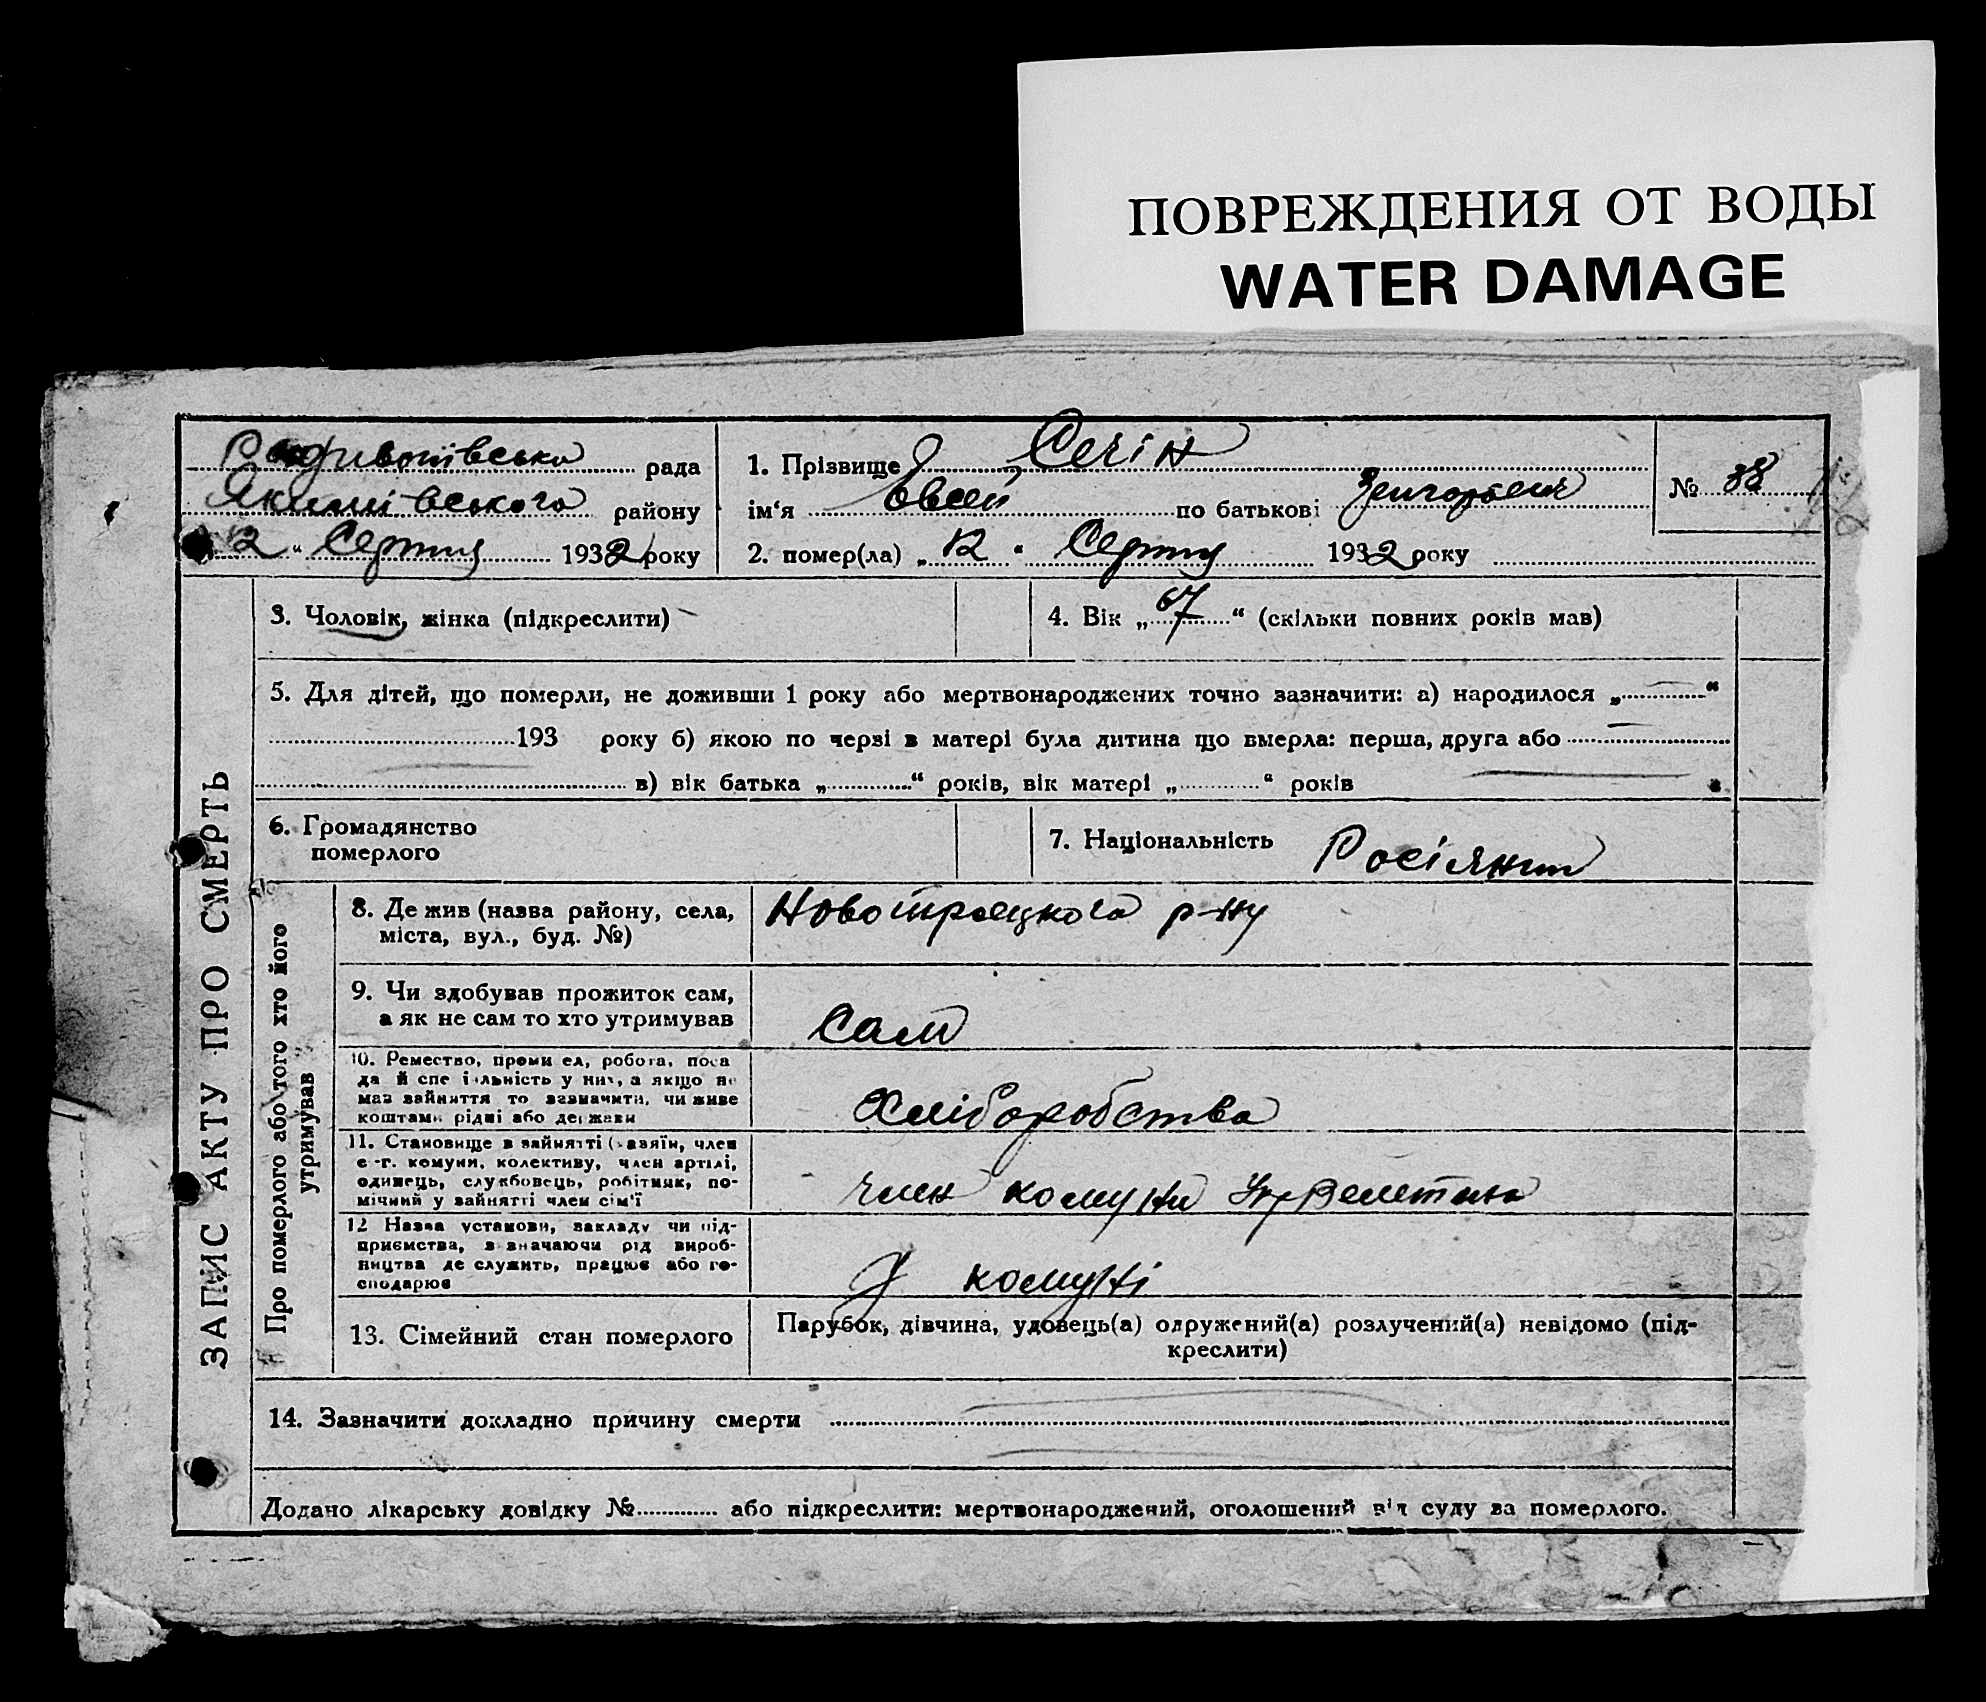 ПОВРЕЖДЕНИЯ ОТ ВОДЫ
WATER DAMAGE
Радивонівська рада
Якимівського району
12 " Серпня 1932 року
1. Прізвище Сечін
ім'я Овсей по батькові Григорьевич
2. помер(ла) „ 12 " Серпня 1932 року
№ 38
3. Чоловік, жінка (підкреслити)
4. Вік „ 67 “ (скільки повних років мав)
5. Для дітей, що померли, не доживши 1 року або мертвонароджених точно зазначити: а) народилося „ “
193 року б) якою по черзі в матері була дитина що вмерла: перша, друга або
в) вік батька „ “ років, вік матері „ “ років
6. Громадянство
померлого
7. Національність Росіянин
ЗАПИС АКТУ ПРО СМЕРТЬ
Про померлого або того хто його
утримував
8. Де жив (назва району, села,
міста, вул., буд. №)
Новотроецкого р-ну
9. Чи здобував прожиток сам,
а як не сам то хто утримував
Сам
10. Ремество, проми ел, робота, поса
да й спе іальність у них, а якщо не
мав зайняття то зазначити, чи живе
коштами рідні або держави
Хліборобства
11. Становище в зайнятті (хазяїн, член
с.-г. комуни, колективу, член артілі,
одинець, службовець, робітник, по-
мічний у зайнятті член сім'ї
член комуни
12 Назва установи, закладу чи під-
приємства, зазначаючи рід вироб-
ництва де служить, працює або го-
сподарює
У комуні
13. Сімейний стан померлого
Парубок, дівчина, удовець(а) одружений(а) розлучений(а) невідомо (під-
креслити)
14. Зазначити докладно причину смерти
Додано лікарську довідку № або підкреслити: мертвонароджений, оголошений від суду за померлого.